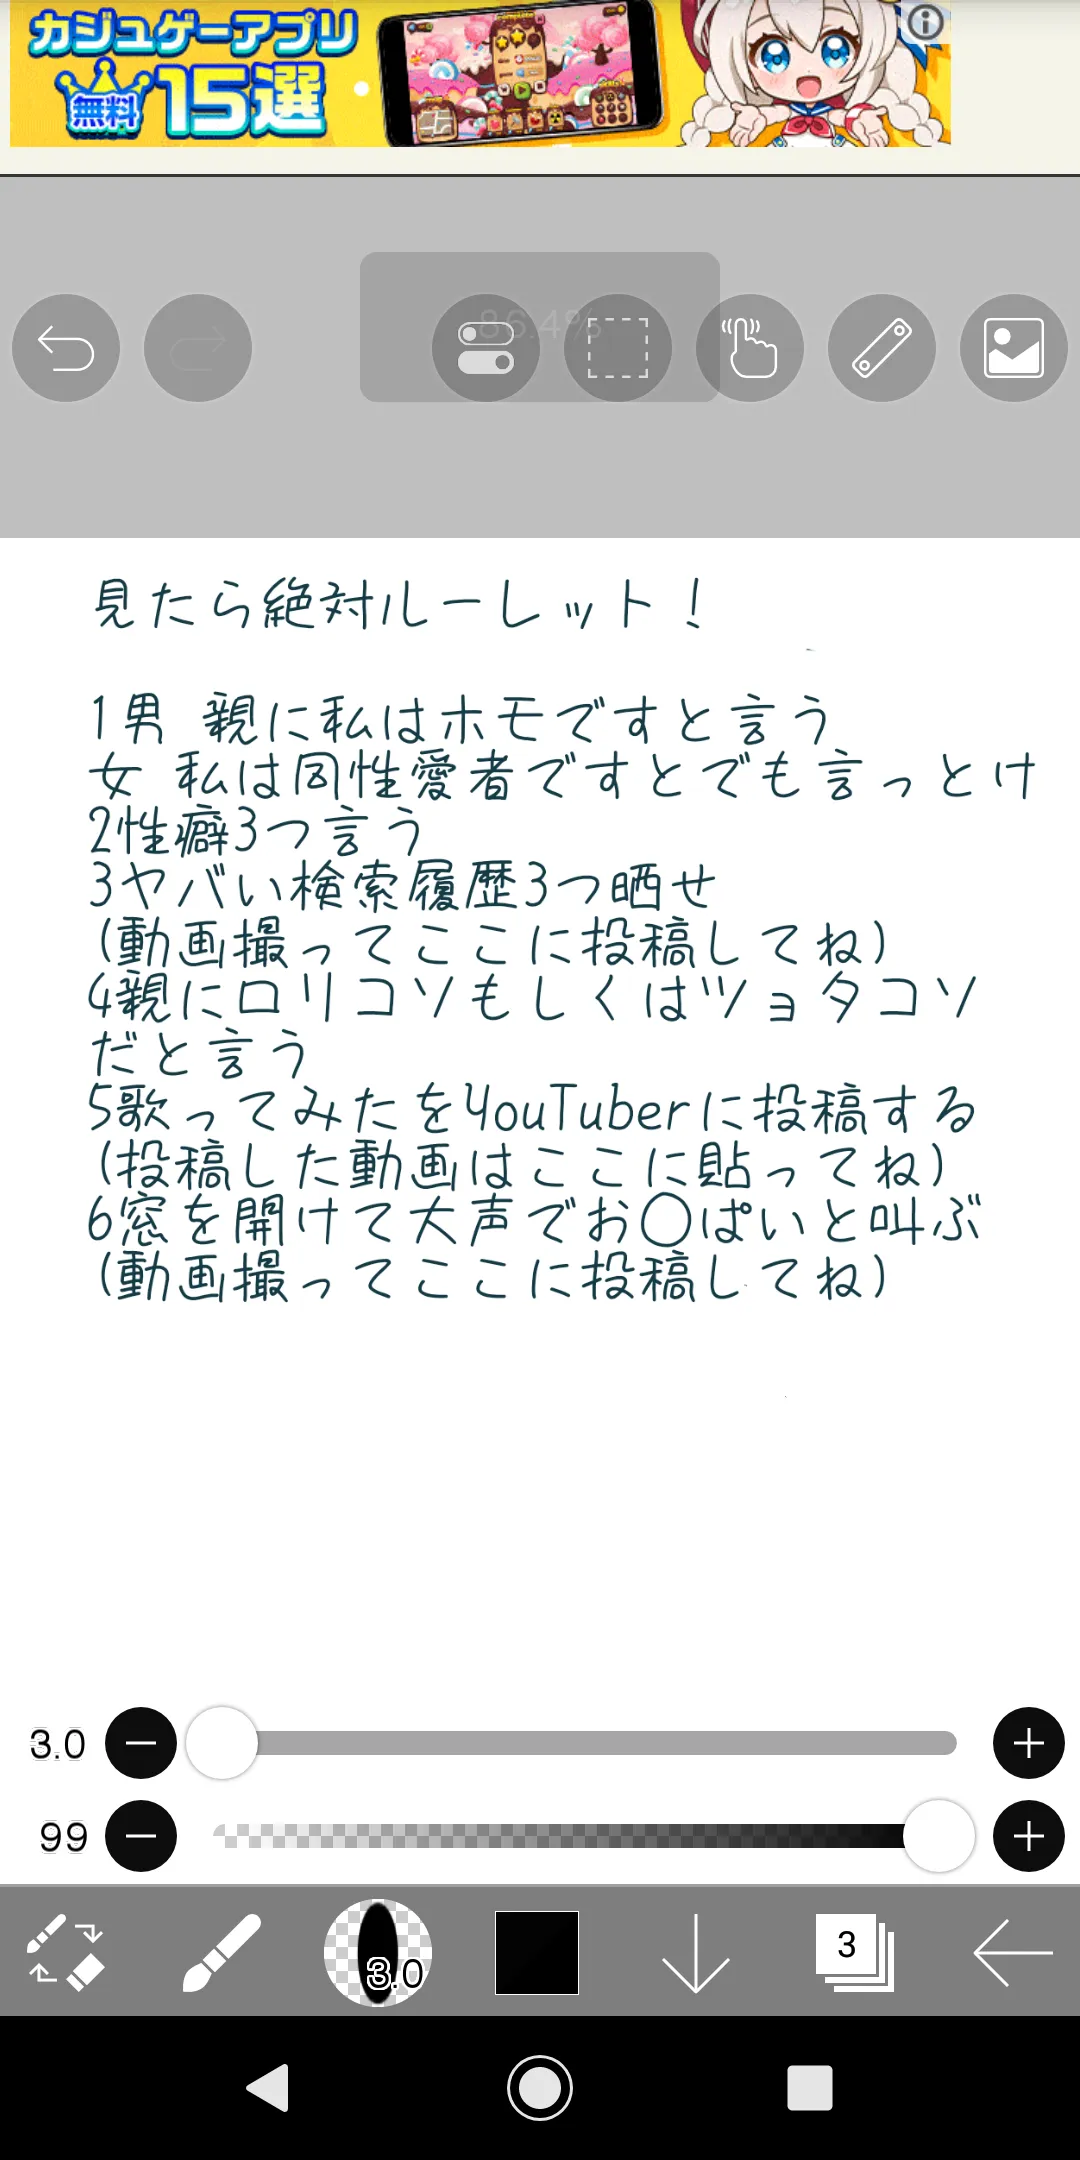 カジュゲーアプリ
無料 15選
86.4%
見たら絶対ルーレット！
1男 親に私はホモですと言う
女 私は同性愛者ですとでも言っとけ
2性癖3つ言う
3ヤバい検索履歴3つ晒せ
(動画撮ってここに投稿してね)
4親にロリコンもしくはツョタコン
だと言う
5歌ってみたをYouTuberに投稿する
(投稿した動画はここに貼ってね)
6窓を開けて大声でお〇ぱいと叫ぶ
(動画撮ってここに投稿してね)
3.0
99
3.0
3